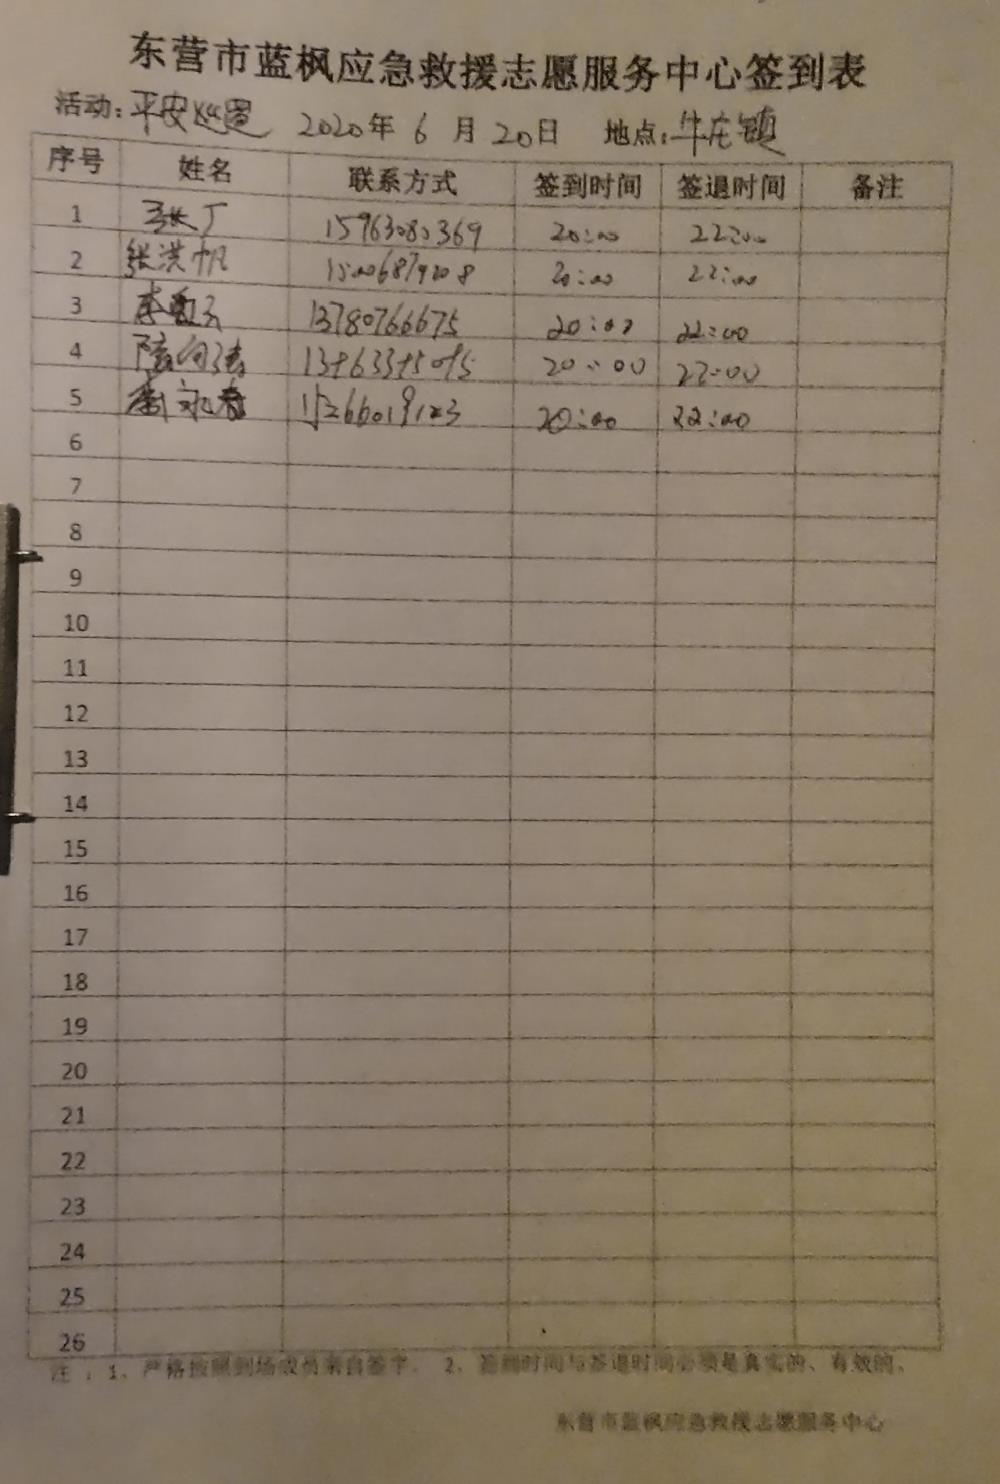 东营市蓝枫应急救援志愿服务中心签到表
活动:平安巡逻 2020年 6 月 20日 地点:牛庄镇
序号 姓名 联系方式 签到时间 签退时间 备注
1 张丁 15963080369 20:00 22:00
2 张洪帆 20:00 22:00
3 13780766675 20:00 22:00
4 20:00 22:00
5 15266019123 20:00 22:00
6
7
8
9
10
11
12
13
14
15
16
17
18
19
20
21
22
23
24
25
26
注:1、严格按照到场成员亲自签字。 2、签到时间与签退时间必须是真实的、有效的。
东营市蓝枫应急救援志愿服务中心